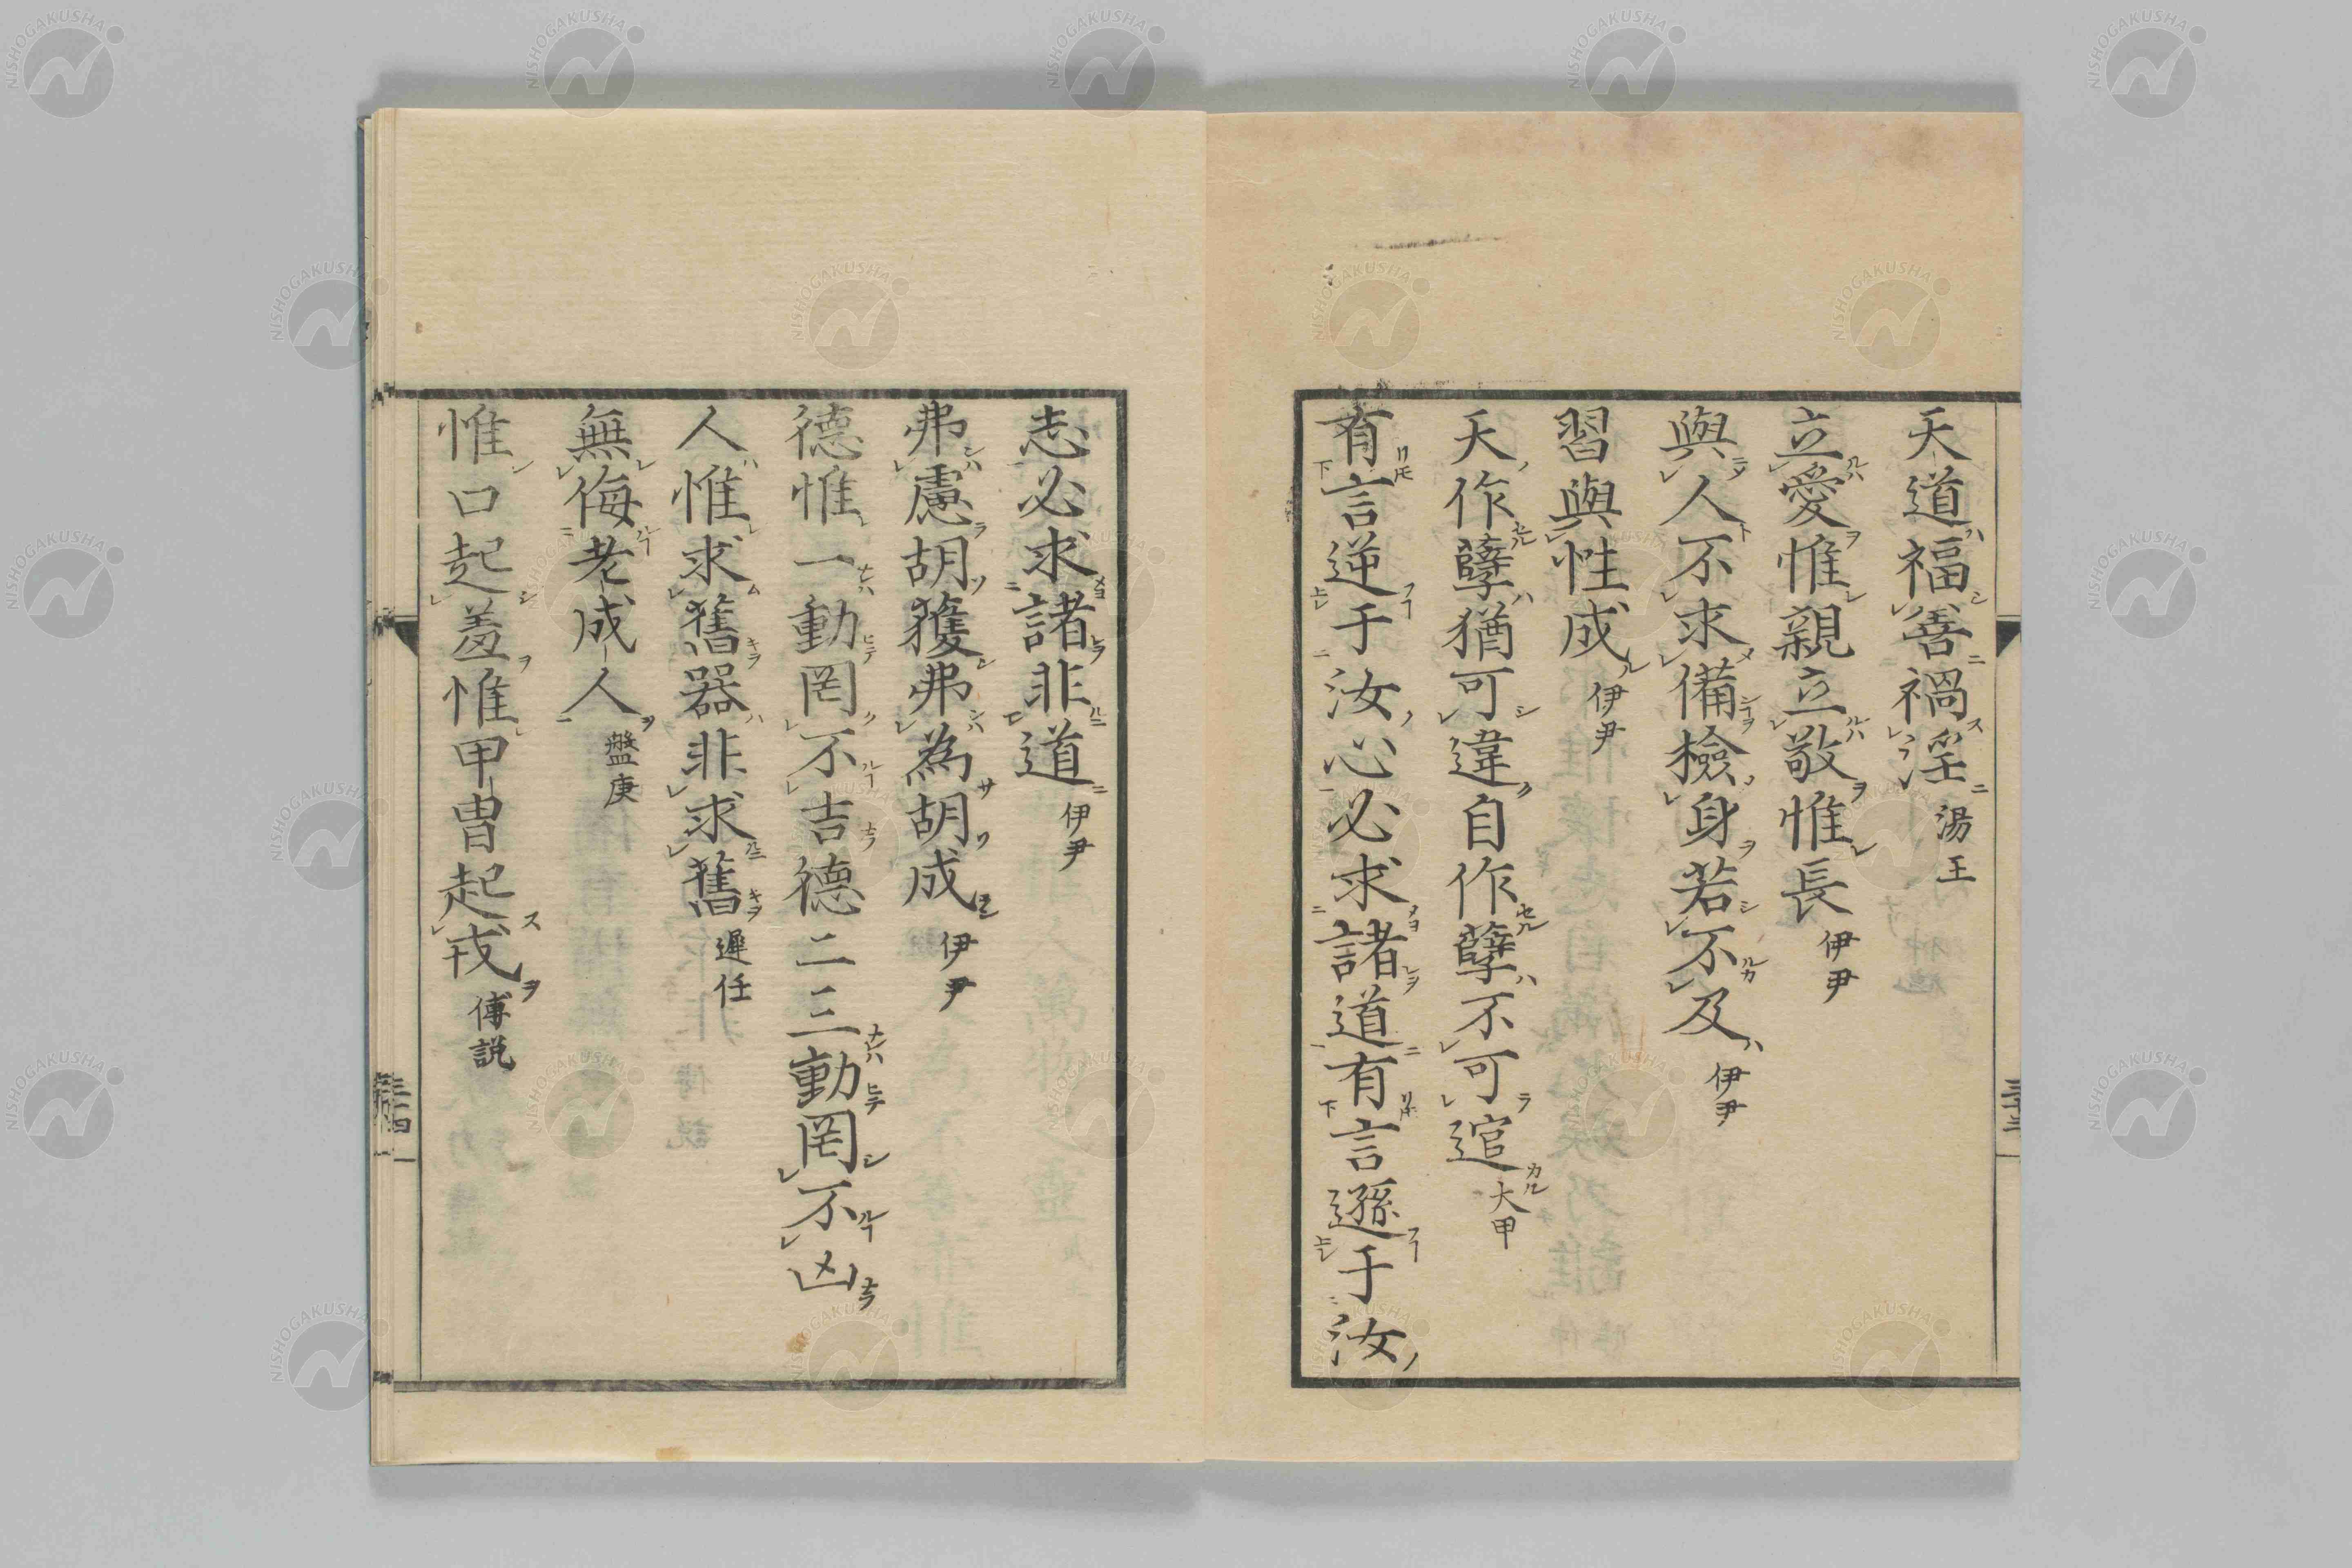 天道福善禍淫 湯王
立愛惟親立敬惟長 伊尹
與人不求備檢身若不及 伊尹
習與性成 伊尹
天作孽猶可違自作孽不可逭 大甲
有言逆于汝心必求諸道有言遜于汝
志必求諸非道 伊尹
弗慮胡獲弗為胡成 伊尹
德惟一動罔不吉德二三動罔不凶
人惟求舊器非求舊 遲任
無侮老成人 盤庚
惟口起羞惟甲冑起戎 傅説
NISHOGAKUSHA